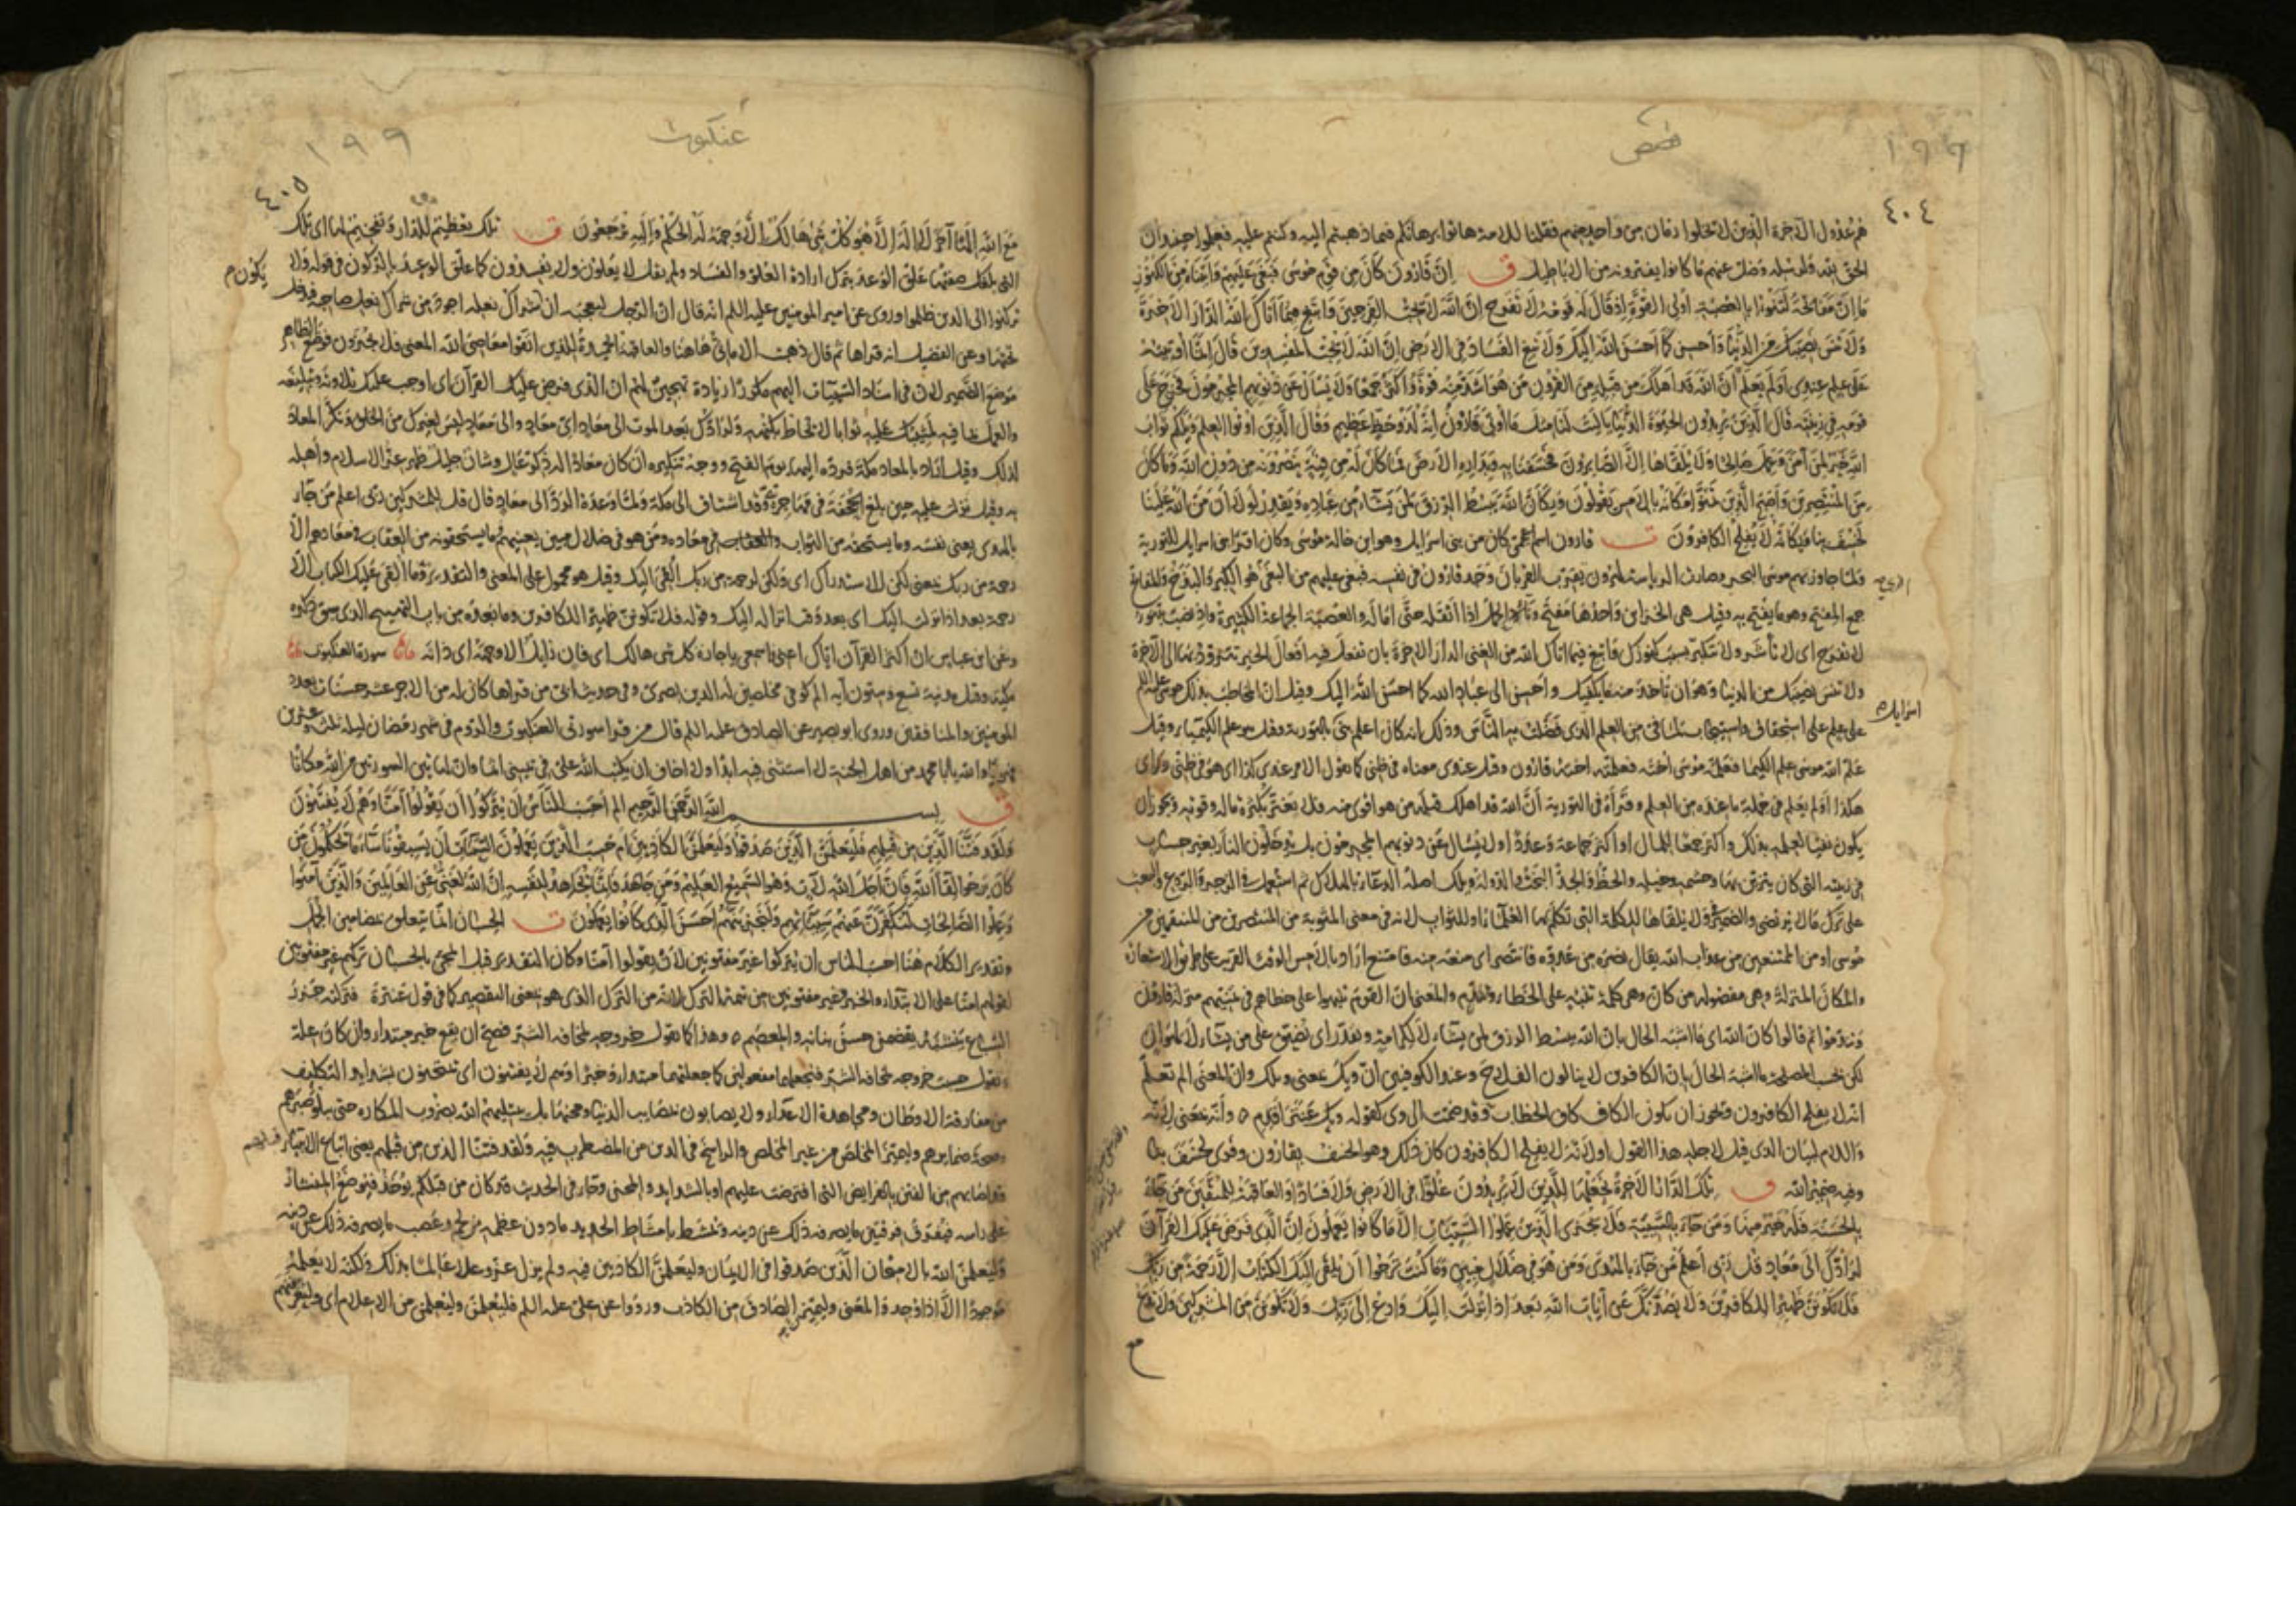 قصص
١٩٩
٤٠٤
هم عدول الآخرة الذين لا يخلوا زمان من واحد منهم فقلنا للامة هاتوا برهانكم فيما ذهبتم اليه وكنتم عليه فعلموا حينئذ ان
الحق لله ولرسله وضل عنهم ما كانوا يفترونه من الاباطيل ق إن قارون كان من قوم موسى فبغى عليهم وآتيناه من الكنوز
ما إن مفاتحه لتنوأ بالعصبة أولى القوة إذ قال له قومه لا تفرح إن الله لا يحب الفرحين وابتغ فيما آتاك الله الدار الآخرة
ولا تنس نصيبك من الدنيا وأحسن كما أحسن الله إليك ولا تبغ الفساد في الارض إن الله لا يحب المفسدين قال إنما أوتيته
على علم عندي أولم يعلم أن الله قد أهلك من قبله من القرون من هو اشد منه قوة وأكثر جمعا ولا يسأل عن ذنوبهم المجرمون فخرج على
قومه في زينته قال الذين يريدون الحيوة الدنيا يا ليت لنا مثل ما أوتي قارون إنه لذو حظ عظيم وقال الذين أوتوا العلم ويلكم ثواب
الله خير لمن آمن وعمل صالحا ولا يلقاها إلا الصابرون فخسفنا به وبداره الارض فما كان له من فئة ينصرونه من دون الله وما كان
من المنتصرين وأصبح الذين تمنوا مكانه بالامس يقولون ويكأن الله يبسط الرزق لمن يشاء من عباده ويقدر لولا أن من الله علينا
لخسف بنا ويكأنه لا يفلح الكافرون ت قارون اسم اعجمي كان من بني اسرايل وهو ابن خالة موسى وكان اقرا بني اسرايل للتورية
ولما جاوز بهم موسى البحر وصارت الرياسة لهرون يقرب القربان وجد قارون في نفسه فبغى عليهم من البغي هو الكبر والبذخ والمفاتح
جمع المفتح وهو ما يفتح به وقيل هي الخزاين واحدها مفتح وناء به الحمل اذا اثقله حتى اماله والعصبة الجماعة الكثيرة واذ نصب بتنوء
لا تفرح اى لا تأشر ولا تتكبر بسبب كنوزك وابتغ فيما اتاك الله من الغنى الدار الاخرة بان تفعل فيه افعال الخير تتزود بها الى الآخرة
ولا تنس نصيبك من الدنيا وهو ان تأخذ منه ما يكفيك وأحسن الى عباد الله كما احسن الله اليك وقيل ان المخاطب بذلك موسى عليه السلم
اسرايل
على علم على استحقاق واستيجاب لما في من العلم الذى فضلت به الناس وذلك انه كان اعلم بني بالتورية وقيل هو علم الكيمياء وقيل
علم الله موسى علم الكيميا فعلمه موسى أخته فعلمته اخته قارون وقيل عندى معناه في ظني كما تقول الامر عندى كذا اى هو في ظني ورأى
هكذا أولم يعلم في جملة ما عنده من العلم وقرأه في التورية أن الله قد اهلك قبله من هو اقوى منه فلا يغتر بكثرة ماله وقوته ويجوز ان
يكون نفيا لعلمه بذلك واكثر جمعا للمال او اكثر جماعة وعددا ولا يسأل عن ذنوبهم المجرمون بل يدخلون النار بغير حساب
في زينته التي كان يتزين بها وحشمه وخيله والحظ والجد البخت والدولة ويلك اصله الدعاء بالهلاك ثم استعمل في الزجر والردع والبعث
على ترك ما لا يرتضى والضمير في ولا يلقاها للكلمة التي تكلم بها العلماء او للثواب لانه في معنى المثوبة من المنتصرين من المنتقمين من
موسى او من الممتنعين من عذاب الله يقال نصره من عدوه فانتصر اى منعه منه فامتنع اراد بالامس الوقت القريب على طريق الاستعارة
والمكان المنزلة وهي مفصولة من كأن وهي كلمة تنبيه على الخطاء وتندم والمعنى ان القوم تنبهوا على خطاهم في تمنيهم منزلة قارون
وتندموا ثم قالوا كان الله اى ما اشبه الحال بان الله يبسط الرزق لمن يشاء لا لكرامة ويقدر اى يضيق على من يشاء لا لهوان
لكن بحسب المصلحة ما اشبه الحال بان الكافرين لا ينالون الفلاح وعند الكوفيين ان ويك بمعنى ويلك وان المعنى الم تعلم
انه لا يفلح الكافرون ويجوز ان يكون الكاف كاف الخطاب قد ضمت الى وى كقوله ويك عنتر اقدم وأنه بمعنى لانه
واللام لبيان الذى قيل لاجله هذا القول او لانه لا يفلح الكافرون كان ذلك وهو الخسف بقارون وقرى لخسف بنا
وفيه ضمير الله ق تلك الدار الآخرة نجعلها للذين لا يريدون علوا في الارض ولا فسادا والعاقبة للمتقين من جاء
بالحسنة فله خير منها ومن جاء بالسيئة فلا يجزى الذين عملوا السيئات إلا ما كانوا يعملون إن الذى فرض عليك القرآن
لرادك الى معاد قل ربي أعلم من جاء بالهدى ومن هو في ضلال مبين وما كنت ترجوا أن يلقى إليك الكتاب إلا رحمة من ربك
فلا تكونن ظهيرا للكافرين ولا يصدنك عن آيات الله بعد اذ أنزلت إليك وادع الى ربك ولا تكونن من المشركين ولا تدع
مع
عنكبوت
١٩٩
٤٠٥
مع الله إلها آخر لا إله إلا هو كل شئ هالك إلا وجهه له الحكم وإليه ترجعون ت تلك تعظيم للدار وتفخيم لها اى تلك
التى بلغك صفتها علق الوعد بترك ارادة العلو والفساد ولم يقل لا يعلون ولا يفسدون كما علق الوعيد بالركون في قوله ولا
تركنوا الى الذين ظلموا وروى عن امير المومنين عليه السلم انه قال ان الرجل ليعجبه ان شراك نعله اجود من شراك نعل صاحبه فيدخل
تحتها وعن الفضيل انه قراها ثم قال ذهبت الاماني هاهنا والعاقبة الحميدة للذين اتقوا معاصي الله المعنى فلا يجزون فوضع الظاهر
موضع الضمير لان في اسناد السيئات اليهم مكررا زيادة تهجين لهم ان الذى فرض عليك القرآن اى اوجب عليك تلاوته وتبليغه
والعمل بما فيه لمثيبك عليه ثوابا لا يحاط بكنهه ولرادك بعد الموت الى معاد اى معاد والى معاد ليس لغيرك من الخلق ونكر المعاد
لذلك وقيل اراد بالمعاد مكة فرده اليها يوم الفتح ووجه تنكيره ان كان معادا له ذكر عال وشان جليل ظهر عز الاسلام وأهله
به وقيل نزلت عليه حين بلغ الجحفة في مهاجره وقد اشتاق الى مكة ولما وعده الرد الى معاد قال قل للمشركين ربي اعلم من جاء
بالهدى يعنى نفسه وما يستحقه من الثواب في معاده ومن هو في ضلال مبين يعنيهم وما يستحقونه من العقاب في معادهم الا
رحمة من ربك بمعنى لكن للاستدراك اى ولكن لرحمة من ربك ألقى اليك وقيل هو محمول على المعنى والتقدير وما ألقى عليك الكتاب الا
رحمة بعد اذ انزلت اليك اى بعد وقت انزاله اليك وقوله فلا تكونن ظهيرا للكافرين وما بعده من باب التهييج الذى سبق ذكره
وعن ابن عباس ان اكثر القرآن اياك اعنى واسمعي يا جاره كل شئ هالك اى فان زايل الا وجهه اى ذاته سورة العنكبوت
مكية وقيل مدنية تسع وستون آية الم كوفي مخلصين له الدين بصرى وفي حديث ابى من قراها كان له من الاجر عشر حسنات بعدد
المومنين والمنافقين وروى ابو بصير عن الصادق عليه السلم قال من قرا سورتي العنكبوت والروم في شهر رمضان ليلة ثلث وعشرين
فهو والله يا با محمد من اهل الجنة لا استثنى فيه ابدا ولا اخاف ان يكتب الله علي في يميني اثما وان لهاتين السورتين من الله مكانا
ق بسم الله الرحمن الرحيم الم أحسب الناس أن يتركوا أن يقولوا آمنا وهم لا يفتنون
ولقد فتنا الذين من قبلهم فليعلمن الله الذين صدقوا وليعلمن الكاذبين أم حسب الذين يعملون السيئات أن يسبقونا ساء ما يحكمون من
كان يرجوا لقاء الله فإن أجل الله لآت وهو السميع العليم ومن جاهد فإنما يجاهد لنفسه إن الله لغني عن العالمين والذين آمنوا
وعملوا الصالحات لنكفرن عنهم سيئاتهم ولنجزينهم أحسن الذى كانوا يعملون ت الحسبان انما يتعلق بمضامين الجمل
وتقدير الكلام هنا احسب الناس ان يتركوا غير مفتونين لان يقولوا آمنا وكان التقدير قبل المجئ بالحسبان تركهم غير مفتونين
لقولهم امنا على الابتداء والخبر وغير مفتونين من تتمة الترك لانه من الترك الذى هو بمعنى التصيير كما في قول عنترة فتركته جزر
السباع ينشنه يقضمن حسن بنانه والمعصم وهذا كما تقول خروجه لمخافة الشر فصح ان يقع خبر مبتدا وان كان علة
وتقول حسبت خروجه لمخافة الشر فتجعلهما مفعولين كما جعلتهما مبتدا وخبرا وهم لا يفتنون اى يمتحنون بشدايد التكليف
من مفارقة الاوطان ومجاهدة الاعداء ولا يصابون بمصايب الدنيا ومحنها بل يبتليهم الله بضروب المكاره حتى يبلو صبرهم
وصحة ضمايرهم وليميز المخلص من غير المخلص والراسخ في الدين من المضطرب فيه ولقد فتنا الذين من قبلهم يعنى اتباع الانبياء
من الفتن بالفرايض التى افترضت عليهم او بالشدايد والمحن وجاء في الحديث قد كان من قبلكم يؤخذ فيوضع المنشار
على راسه فيفرق فرقتين ما يصرفه ذلك عن دينه ويمشط بامشاط الحديد ما دون عظمه من لحم وعصب ما يصرفه ذلك عن دينه
وليعلمن الله بالامتحان الذين صدقوا في الايمان وليعلمن الكاذبين فيه ولم يزل عز وعلا عالما بذلك ولكنه لا يعلمه
موجودا الا اذا وجد والمعنى وليميزن الصادق من الكاذب ورووا عن علي عليه السلم فليعلمن وليعلمن من الاعلام اى وليعرفنهم